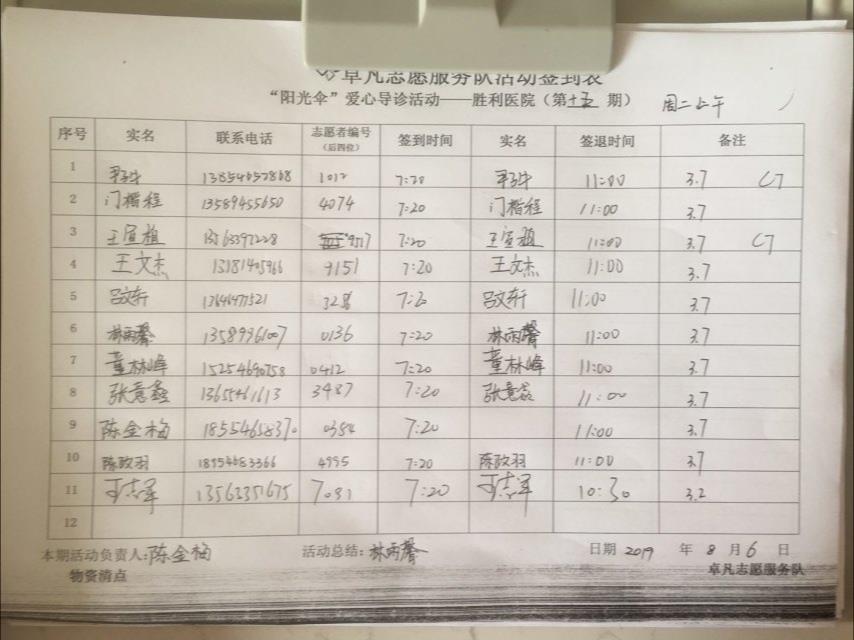 卓凡志愿服务队活动签到表
“阳光伞”爱心导诊活动——胜利医院（第十五期） 周二上午
序号 实名 联系电话 志愿者编号（后四位） 签到时间 实名 签退时间 备注
1 1012 7:20 11:00 3.7
2 门楷程 13589455650 4074 7:20 门楷程 11:00 3.7
3 王宣植 9517 7:20 王宣植 11:00 3.7
4 王文杰 13181405966 9151 7:20 王文杰 11:00 3.7
5 吕文轩 13646477521 吕文轩 11:00 3.7
6 林雨馨 13589961007 0136 7:20 林雨馨 11:00 3.7
7 董林峰 15254690758 0412 7:20 董林峰 11:00 3.7
8 张意鑫 13655461613 3487 7:20 张意鑫 11:00 3.7
9 陈金梅 18554658370 0384 7:20 11:00 3.7
10 陈政羽 18954683366 4995 7:20 陈政羽 11:00 3.7
11 王志军 7081 7:20 王志军 10:30 3.2
12
本期活动负责人：陈金梅 活动总结：林雨馨 日期 2019 年 8 月 6 日
物资清点 卓凡志愿服务队